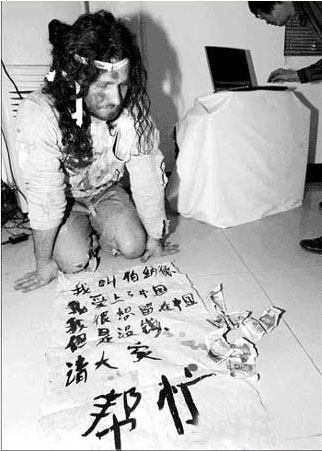 我叫伯纳德
我爱上了中国
我很想留在中国
但是没钱。
请大家
帮忙